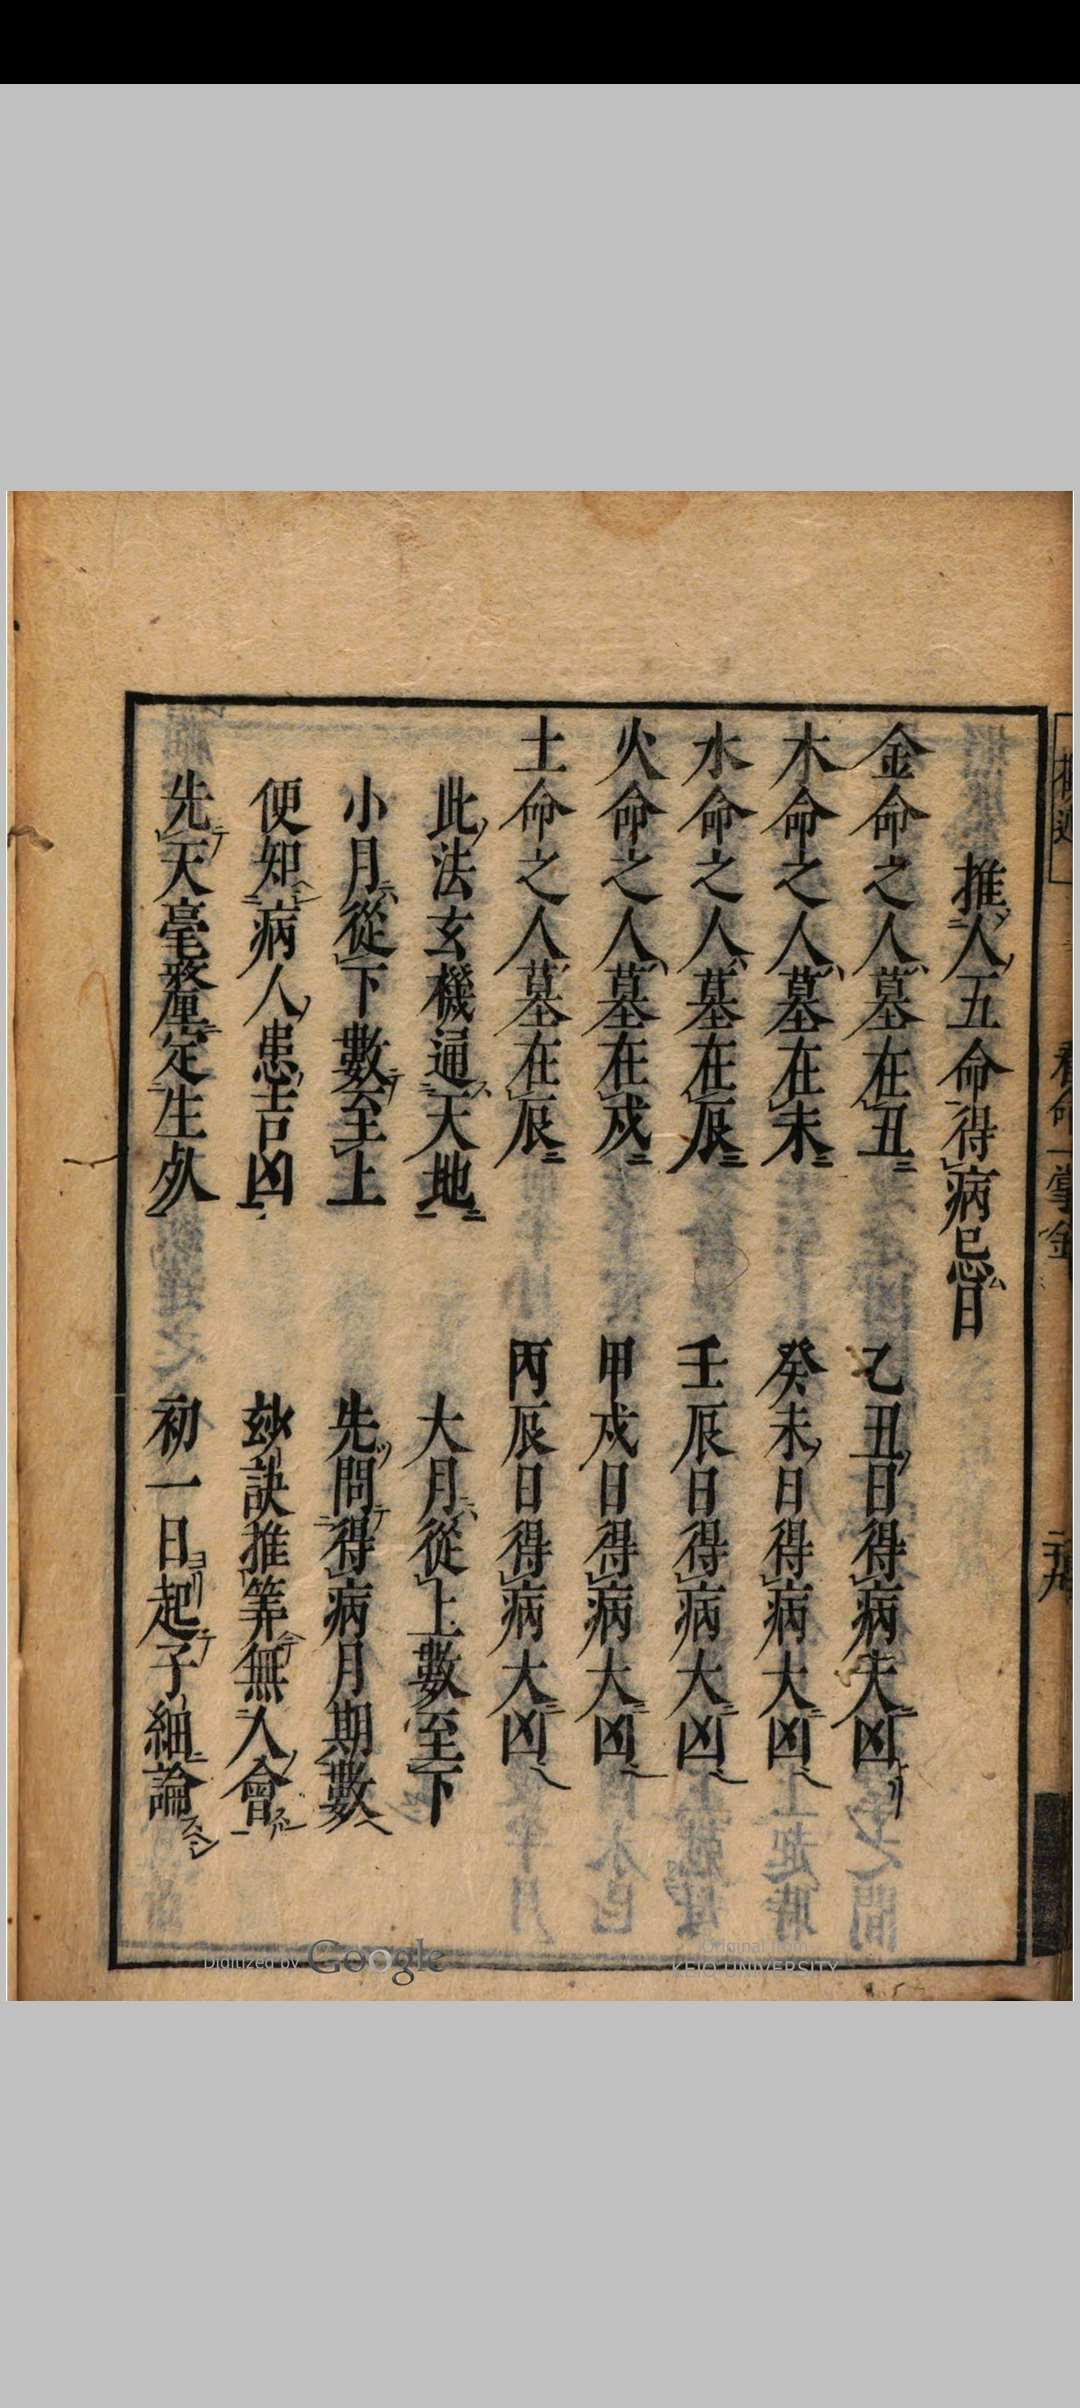 推人五命得病忌日
金命之人墓在丑 乙丑日得病大凶
木命之人墓在未 癸未日得病大凶
水命之人墓在辰 壬辰日得病大凶
火命之人墓在戌 甲戌日得病大凶
土命之人墓在辰 丙辰日得病大凶
此法玄機通天地 大月從上數至下
小月從下數至上 先問得病月期數
便知病人患吉凶 玅訣推筭無人會
先天毫釐定生死 初一日起子細論
Digitized by Google
Original from
KEIO UNIVERSITY